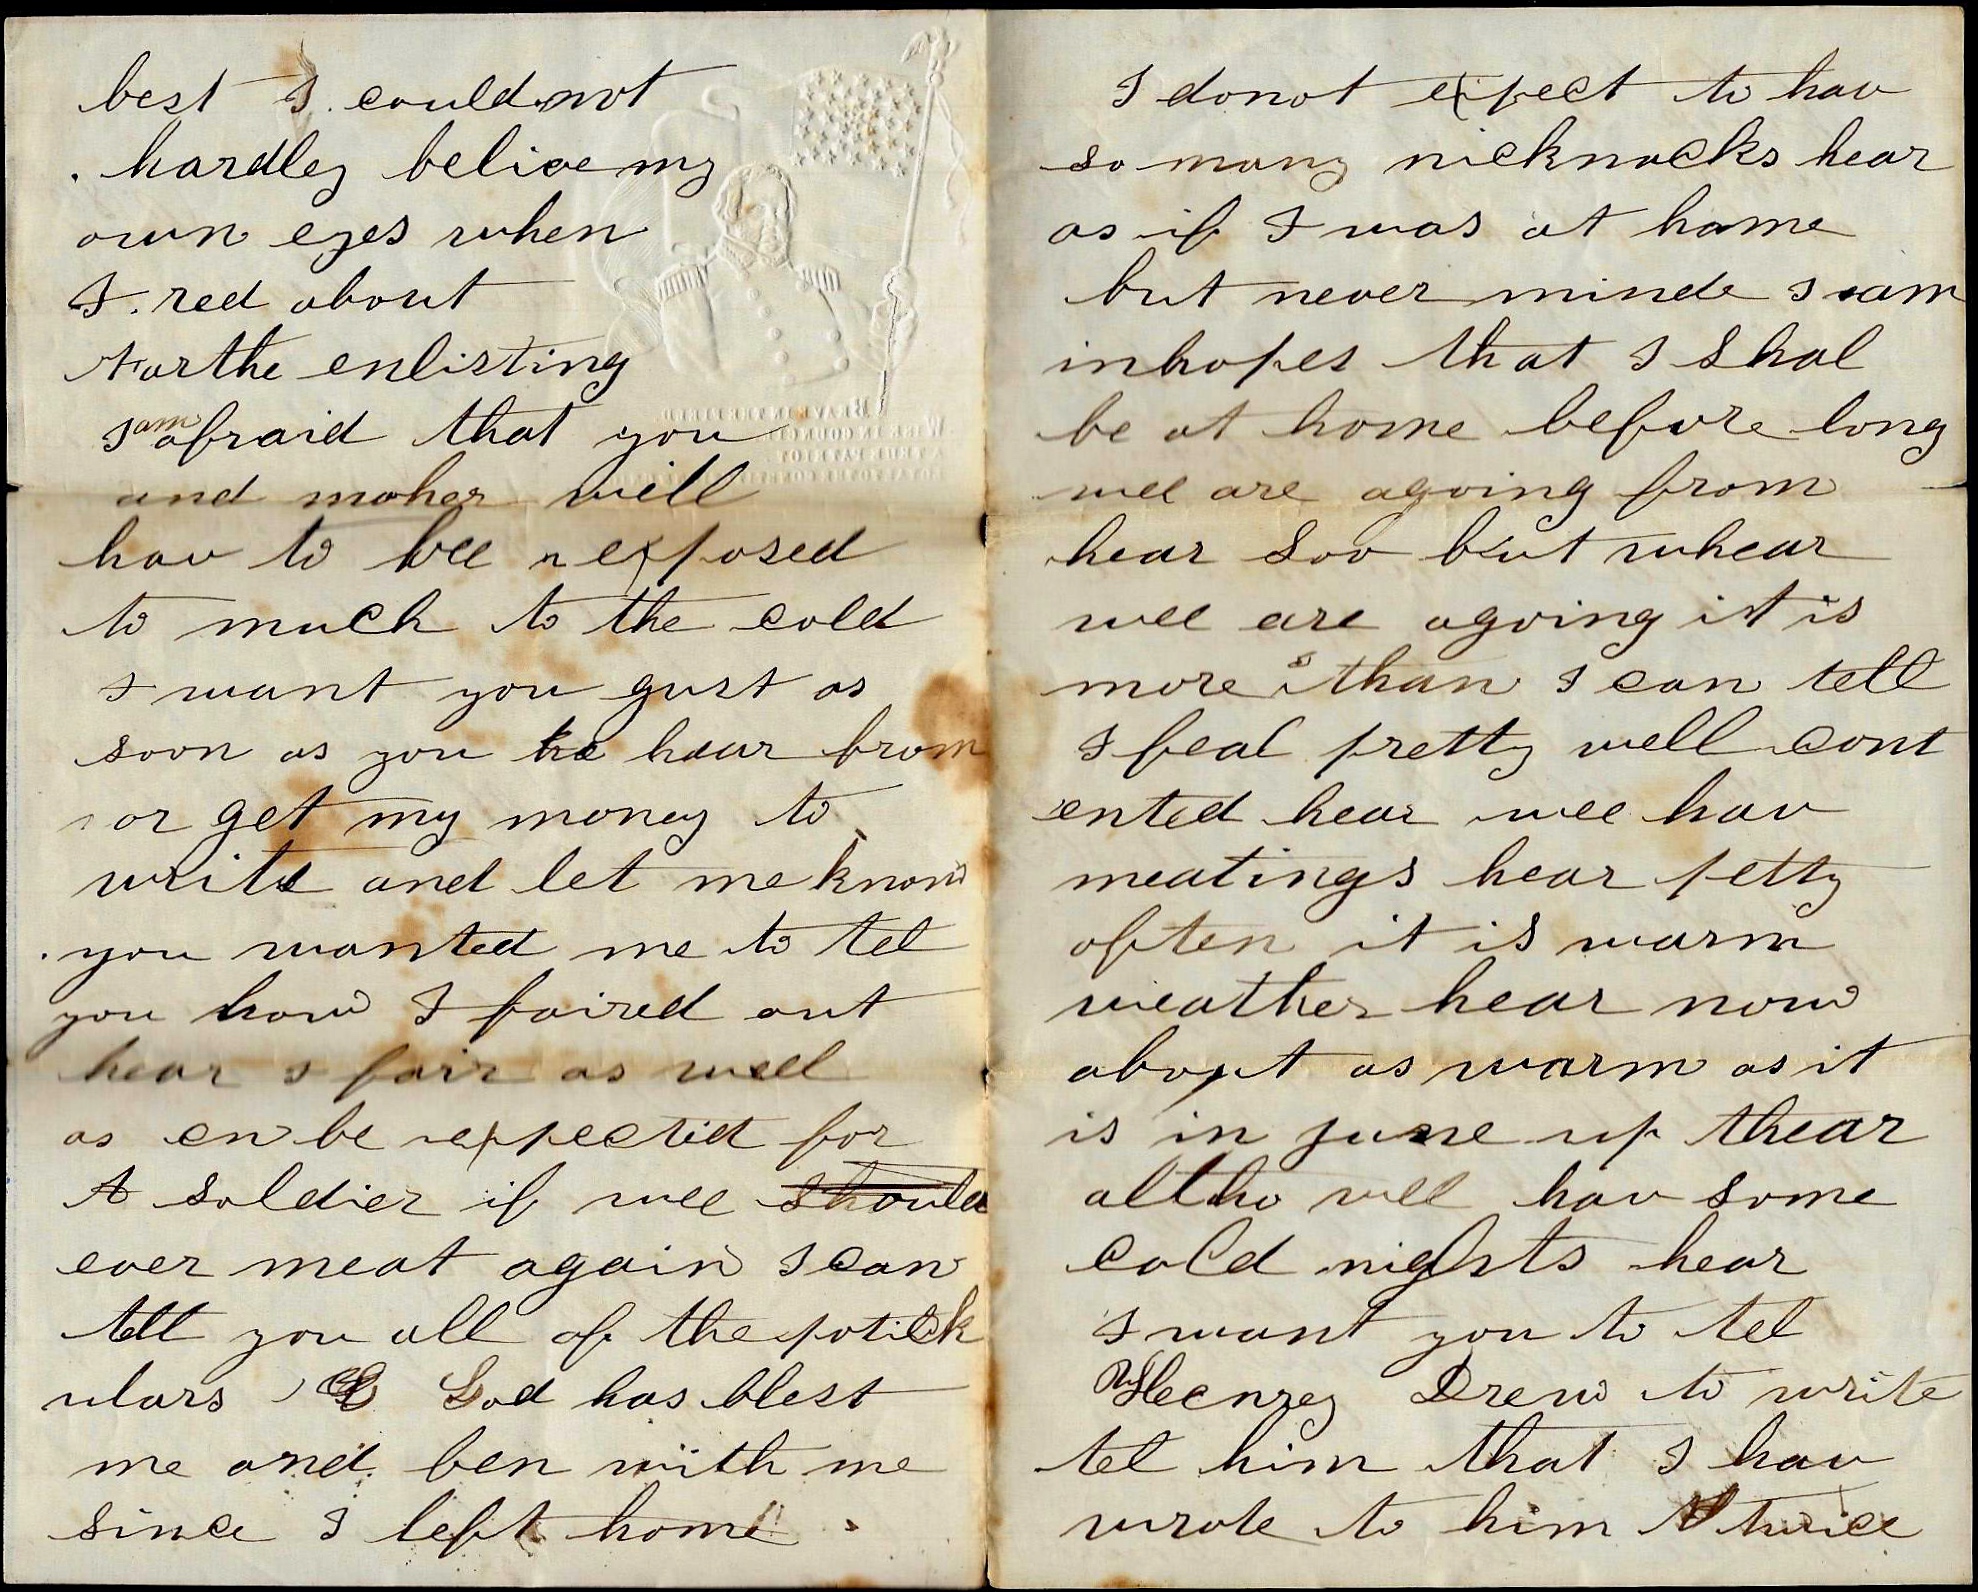 best I could not
hardley belive my
own eyes when
I red about
farthe enlisting
I am afraid that you
and moher will
hav to bee exposed
to much to the cold
I want you gust as
soon as you hear from
or get my money to
write and let me know
you wanted me to tel
you how I faired out
hear I fair as well
as cn be expectid for
A soldier if wee should
ever meat again I can
tell you all of the potick
ulars God has blest
me and ben with me
since I left home
I do not expect to hav
so many nicknacks hear
as if I was at home
but never minde I am
in hopes that I shal
be at home before long
wee are agoing from
hear soo but whear
wee are agoing it is
more than I can tell
I feal pretty well cont
ented hear wee hav
meatings hear petty
often it is warm
weather hear now
about as warm as it
is in june up thear
altho wee hav some
cold nights hear
I want you to tel
Heenrey Drew to write
tel him that I hav
wrote to him twice